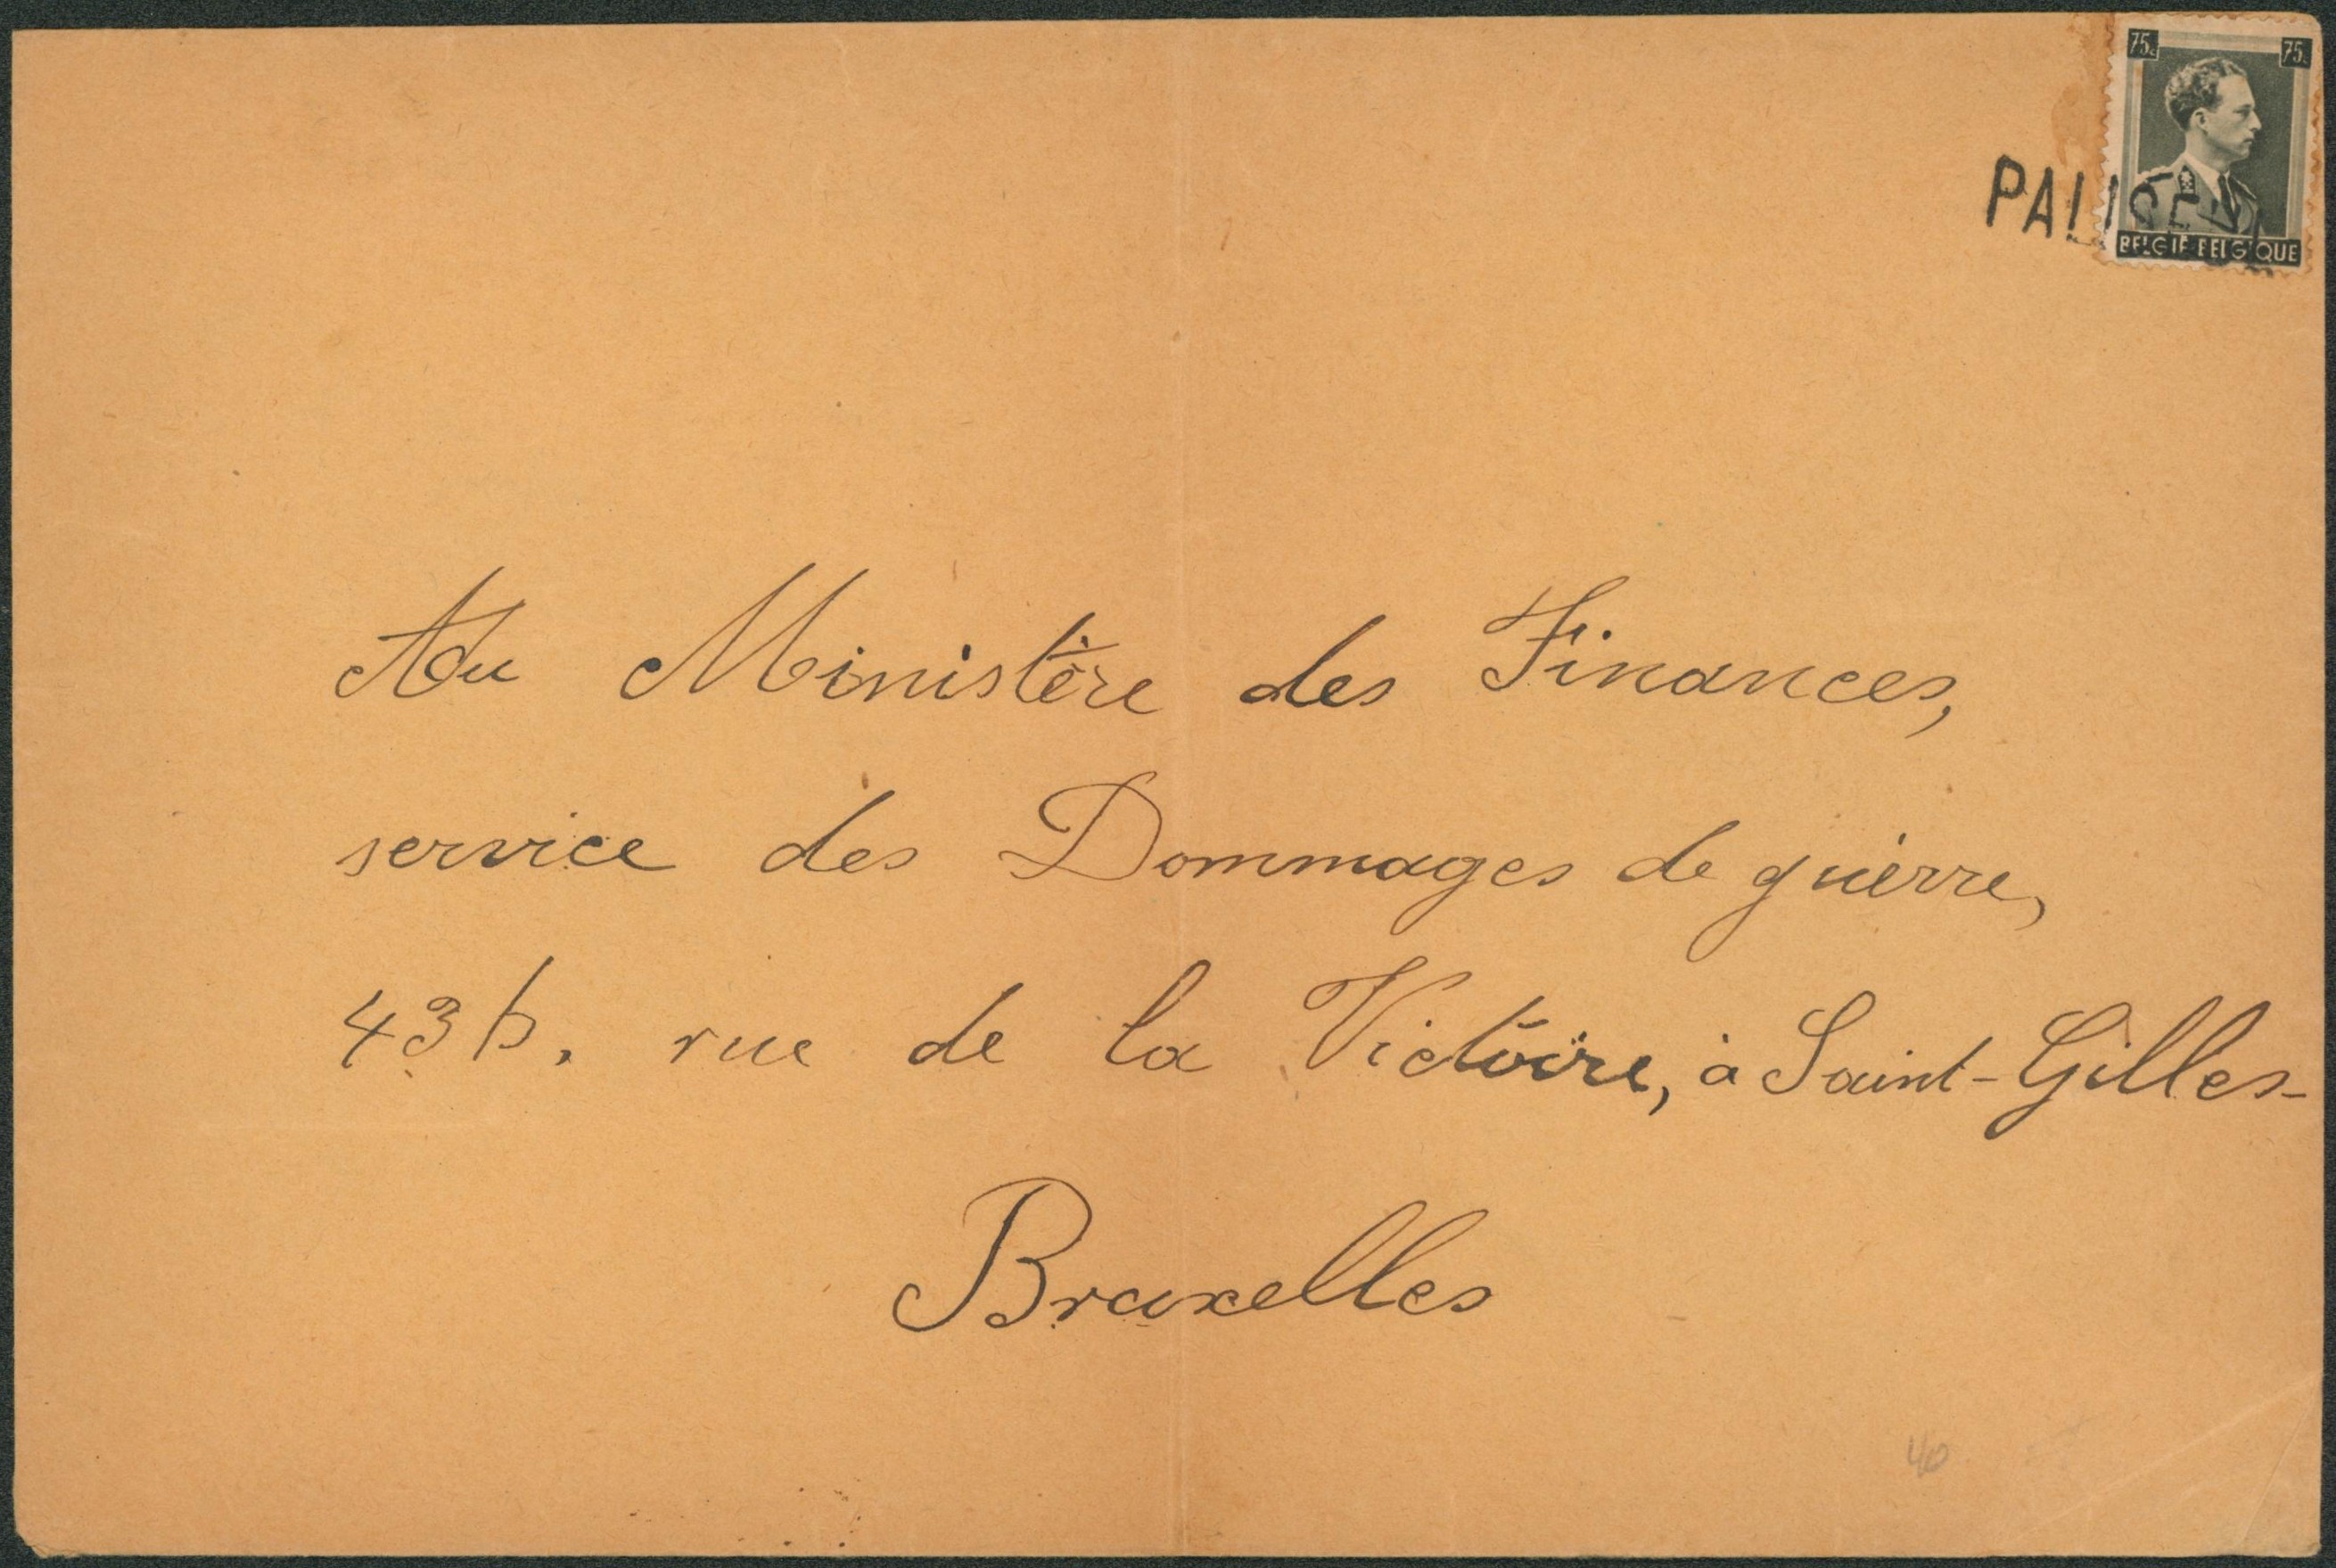 75c 75c
PALISEUL
BELGIË-BELGIQUE
Au Ministère des Finances,
service des Dommages de guerre,
43 b. rue de la Victoire, à Saint-Gilles-
Bruxelles
40